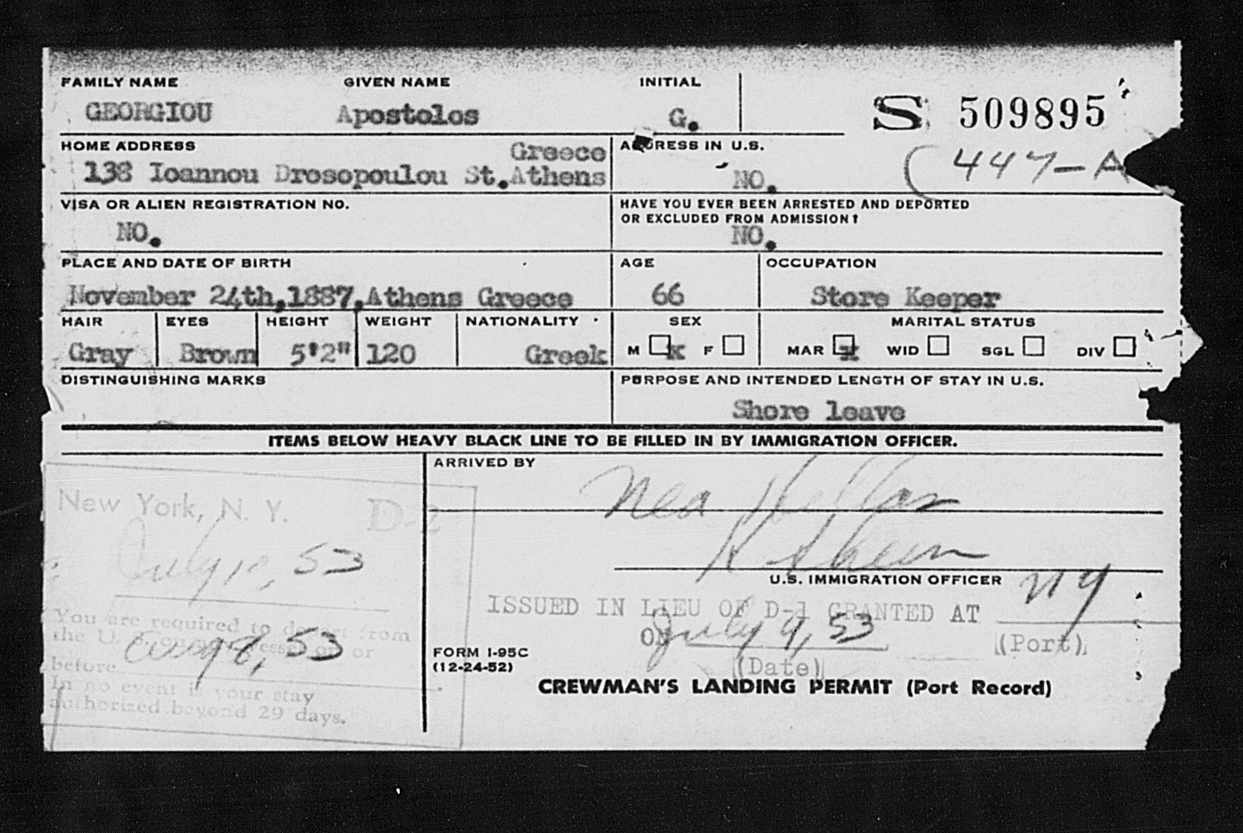 FAMILY NAME GIVEN NAME INITIAL
GEORGIOU Apostolos G. S 509895
HOME ADDRESS ADDRESS IN U.S.
Greece
138 Ioannou Drosopoulou St.Athens NO. (447-A
VISA OR ALIEN REGISTRATION NO. HAVE YOU EVER BEEN ARRESTED AND DEPORTED
OR EXCLUDED FROM ADMISSION?
NO. NO.
PLACE AND DATE OF BIRTH AGE OCCUPATION
November 24th,1887,Athens Greece 66 Store Keeper
HAIR EYES HEIGHT WEIGHT NATIONALITY SEX MARITAL STATUS
Gray Brown 5'2" 120 Greek M X F MAR X WID SGL DIV
DISTINGUISHING MARKS PURPOSE AND INTENDED LENGTH OF STAY IN U.S.
Shore leave
ITEMS BELOW HEAVY BLACK LINE TO BE FILLED IN BY IMMIGRATION OFFICER.
ARRIVED BY
Nea Hellas
New York, N. Y. D-2
July 10, 53
U.S. IMMIGRATION OFFICER
NY
ISSUED IN LIEU OF D-1 GRANTED AT
(Port)
ON July 9, 53
(Date)
You are required to depart from
the U. or
before Aug 8, 53
In no event is your stay
authorized beyond 29 days.
FORM I-95C
(12-24-52)
CREWMAN'S LANDING PERMIT (Port Record)